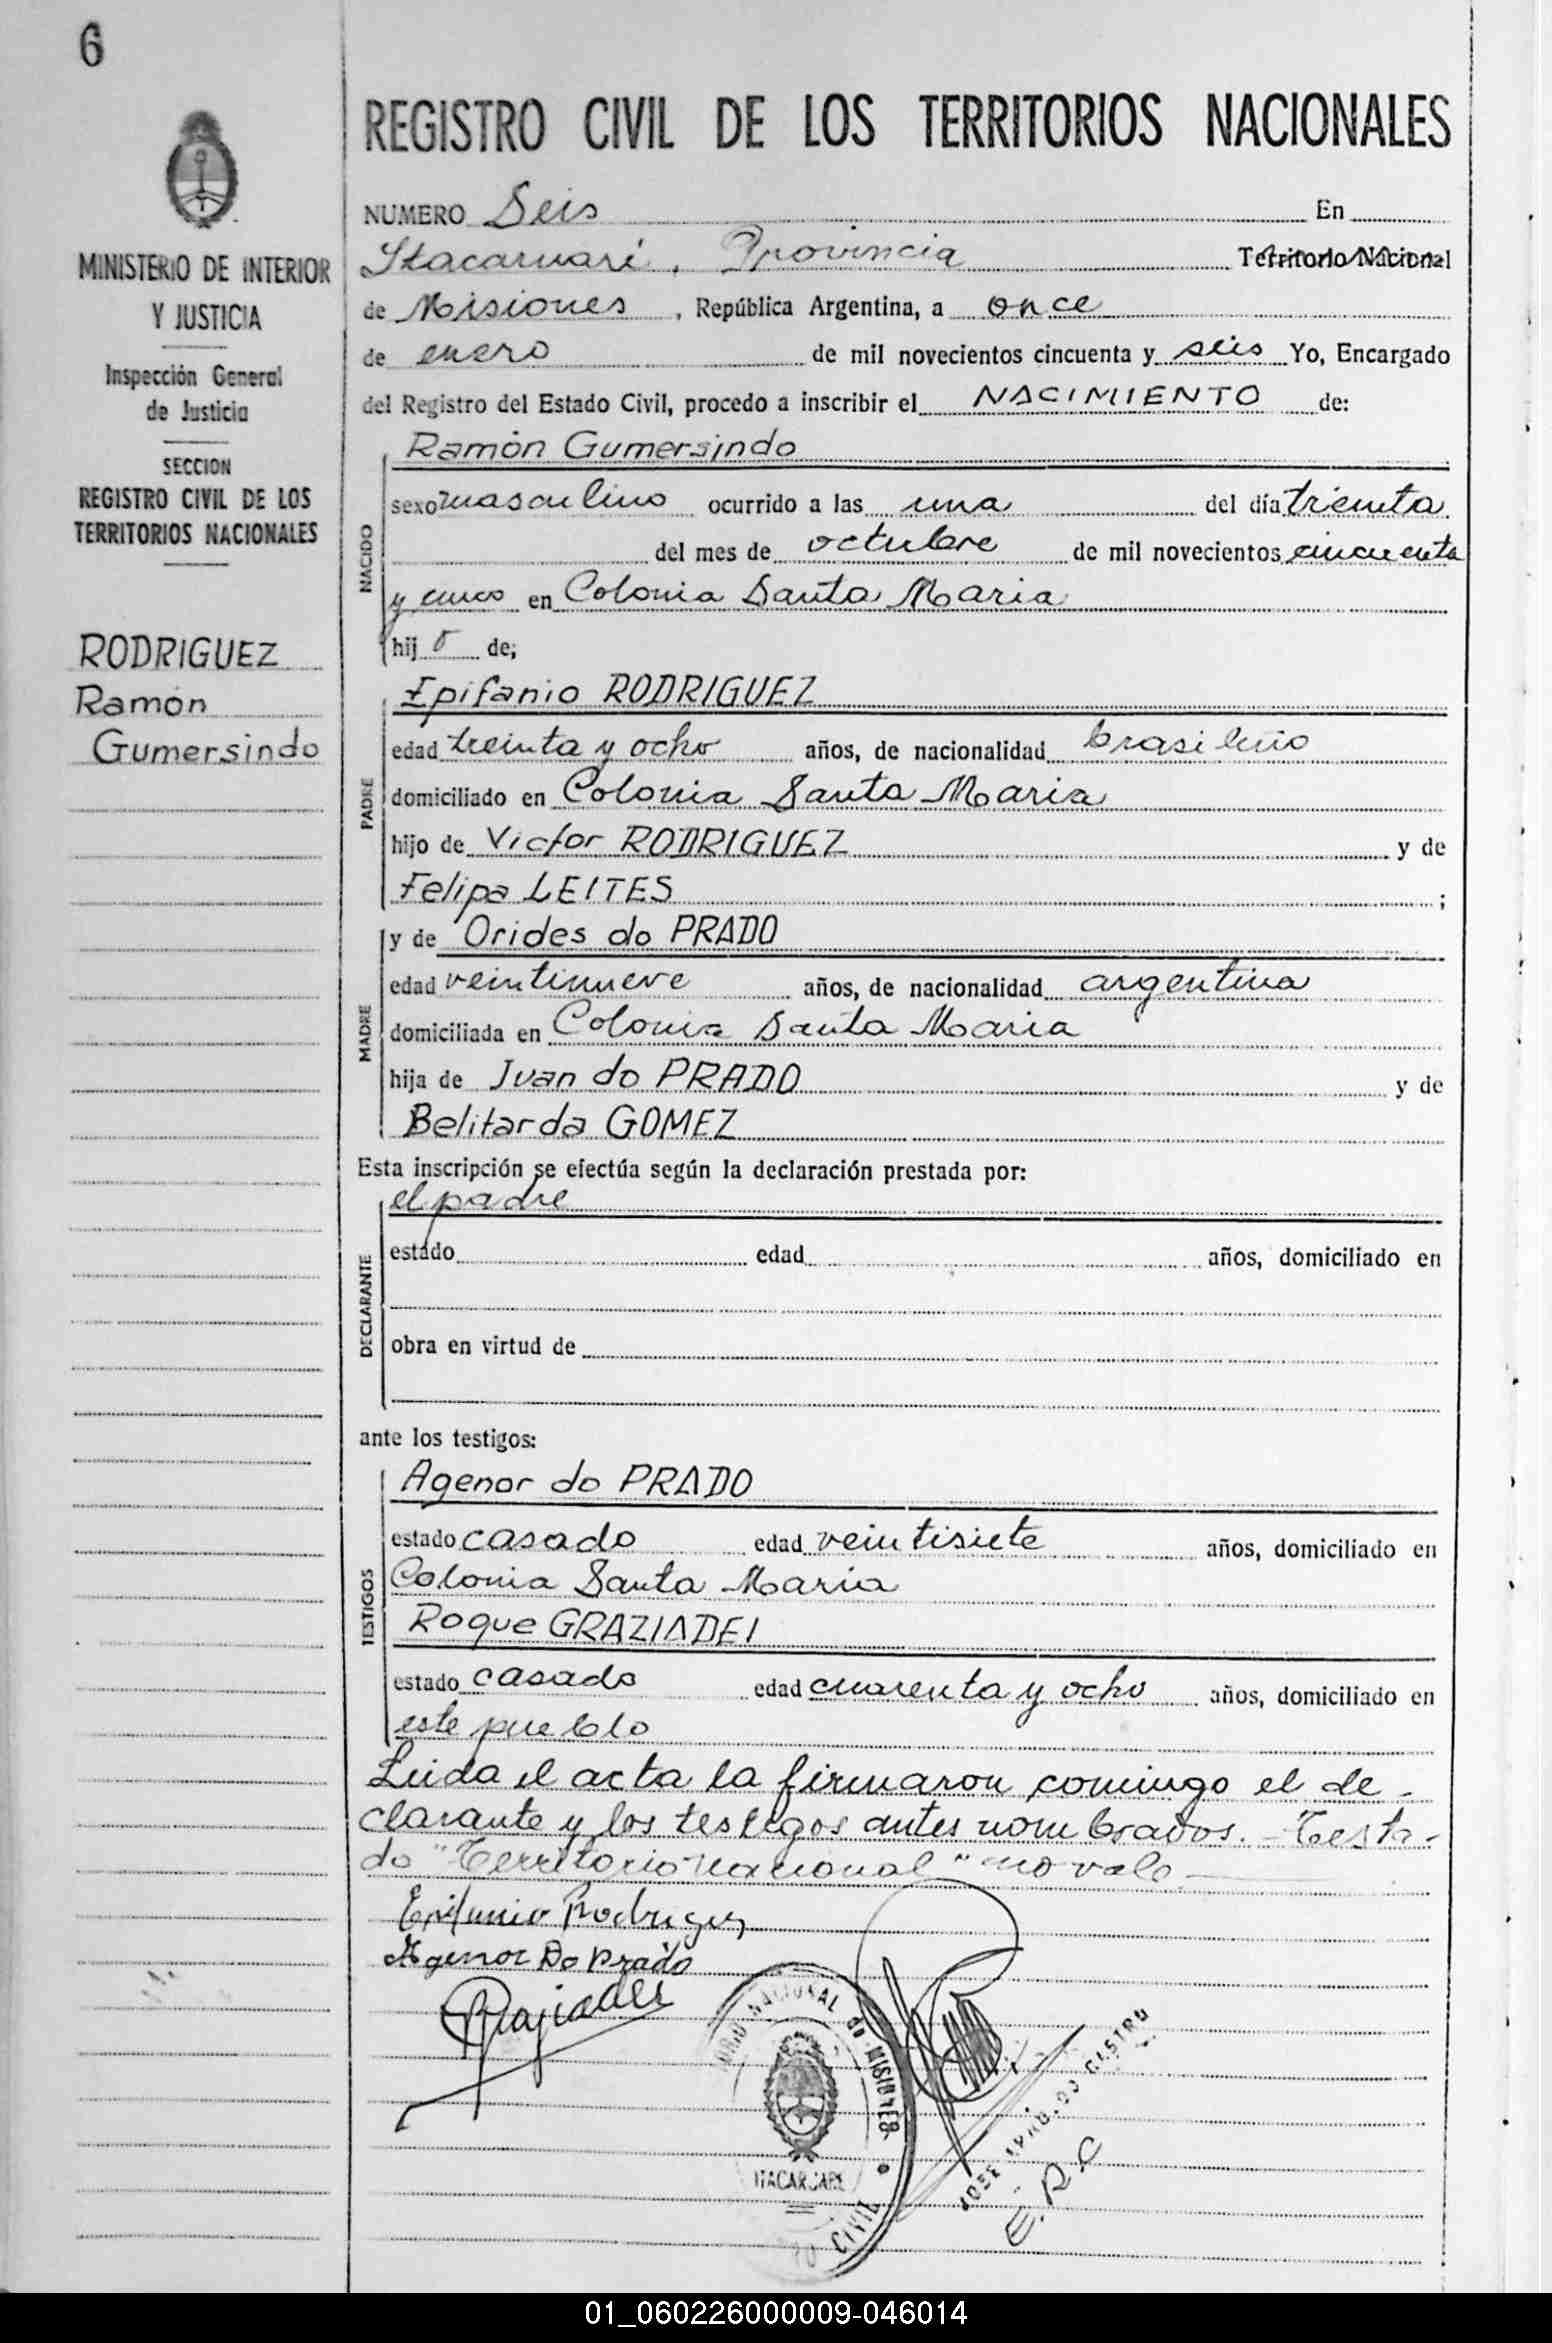 6
MINISTERIO DE INTERIOR
Y JUSTICIA
Inspección General
de Justicia
SECCION
REGISTRO CIVIL DE LOS
TERRITORIOS NACIONALES
RODRIGUEZ
Ramón
Gumersindo
REGISTRO CIVIL DE LOS TERRITORIOS NACIONALES
NUMERO Seis En
Itacaruaré, Provincia Territorio Nacional
de Misiones, República Argentina, a once
de enero de mil novecientos cincuenta y seis Yo, Encargado
del Registro del Estado Civil, procedo a inscribir el NACIMIENTO de:
NACIDO
Ramón Gumersindo
sexo masculino ocurrido a las una del día treinta
del mes de octubre de mil novecientos cincuenta
y cinco en Colonia Santa Maria
hijo de;
PADRE
Epifanio RODRIGUEZ
edad treinta y ocho años, de nacionalidad brasileño
domiciliado en Colonia Santa Maria
hijo de Victor RODRIGUEZ y de
Felipa LEITES ;
MADRE
y de Orides do PRADO
edad veintinueve años, de nacionalidad argentina
domiciliada en Colonia Santa Maria
hija de Juan do PRADO y de
Belitarda GOMEZ
Esta inscripción se efectúa según la declaración prestada por:
DECLARANTE
el padre
estado edad años, domiciliado en
obra en virtud de
ante los testigos:
TESTIGOS
Agenor do PRADO
estado casado edad veintisiete años, domiciliado en
Colonia Santa Maria
Roque GRAZIADEI
estado casado edad cuarenta y ocho años, domiciliado en
este pueblo
Leida el acta la firmaron comingo el de-
clarante y los testigos antes nombrados. - Testa-
do "Territorio nacional" no vale
Epifanio Rodriguez
Agenor Do Prado
NACIONAL de MISIONES
ITACARUARE
CIVIL
JOSE CASTRO
E.R.C
01_060226000009-046014